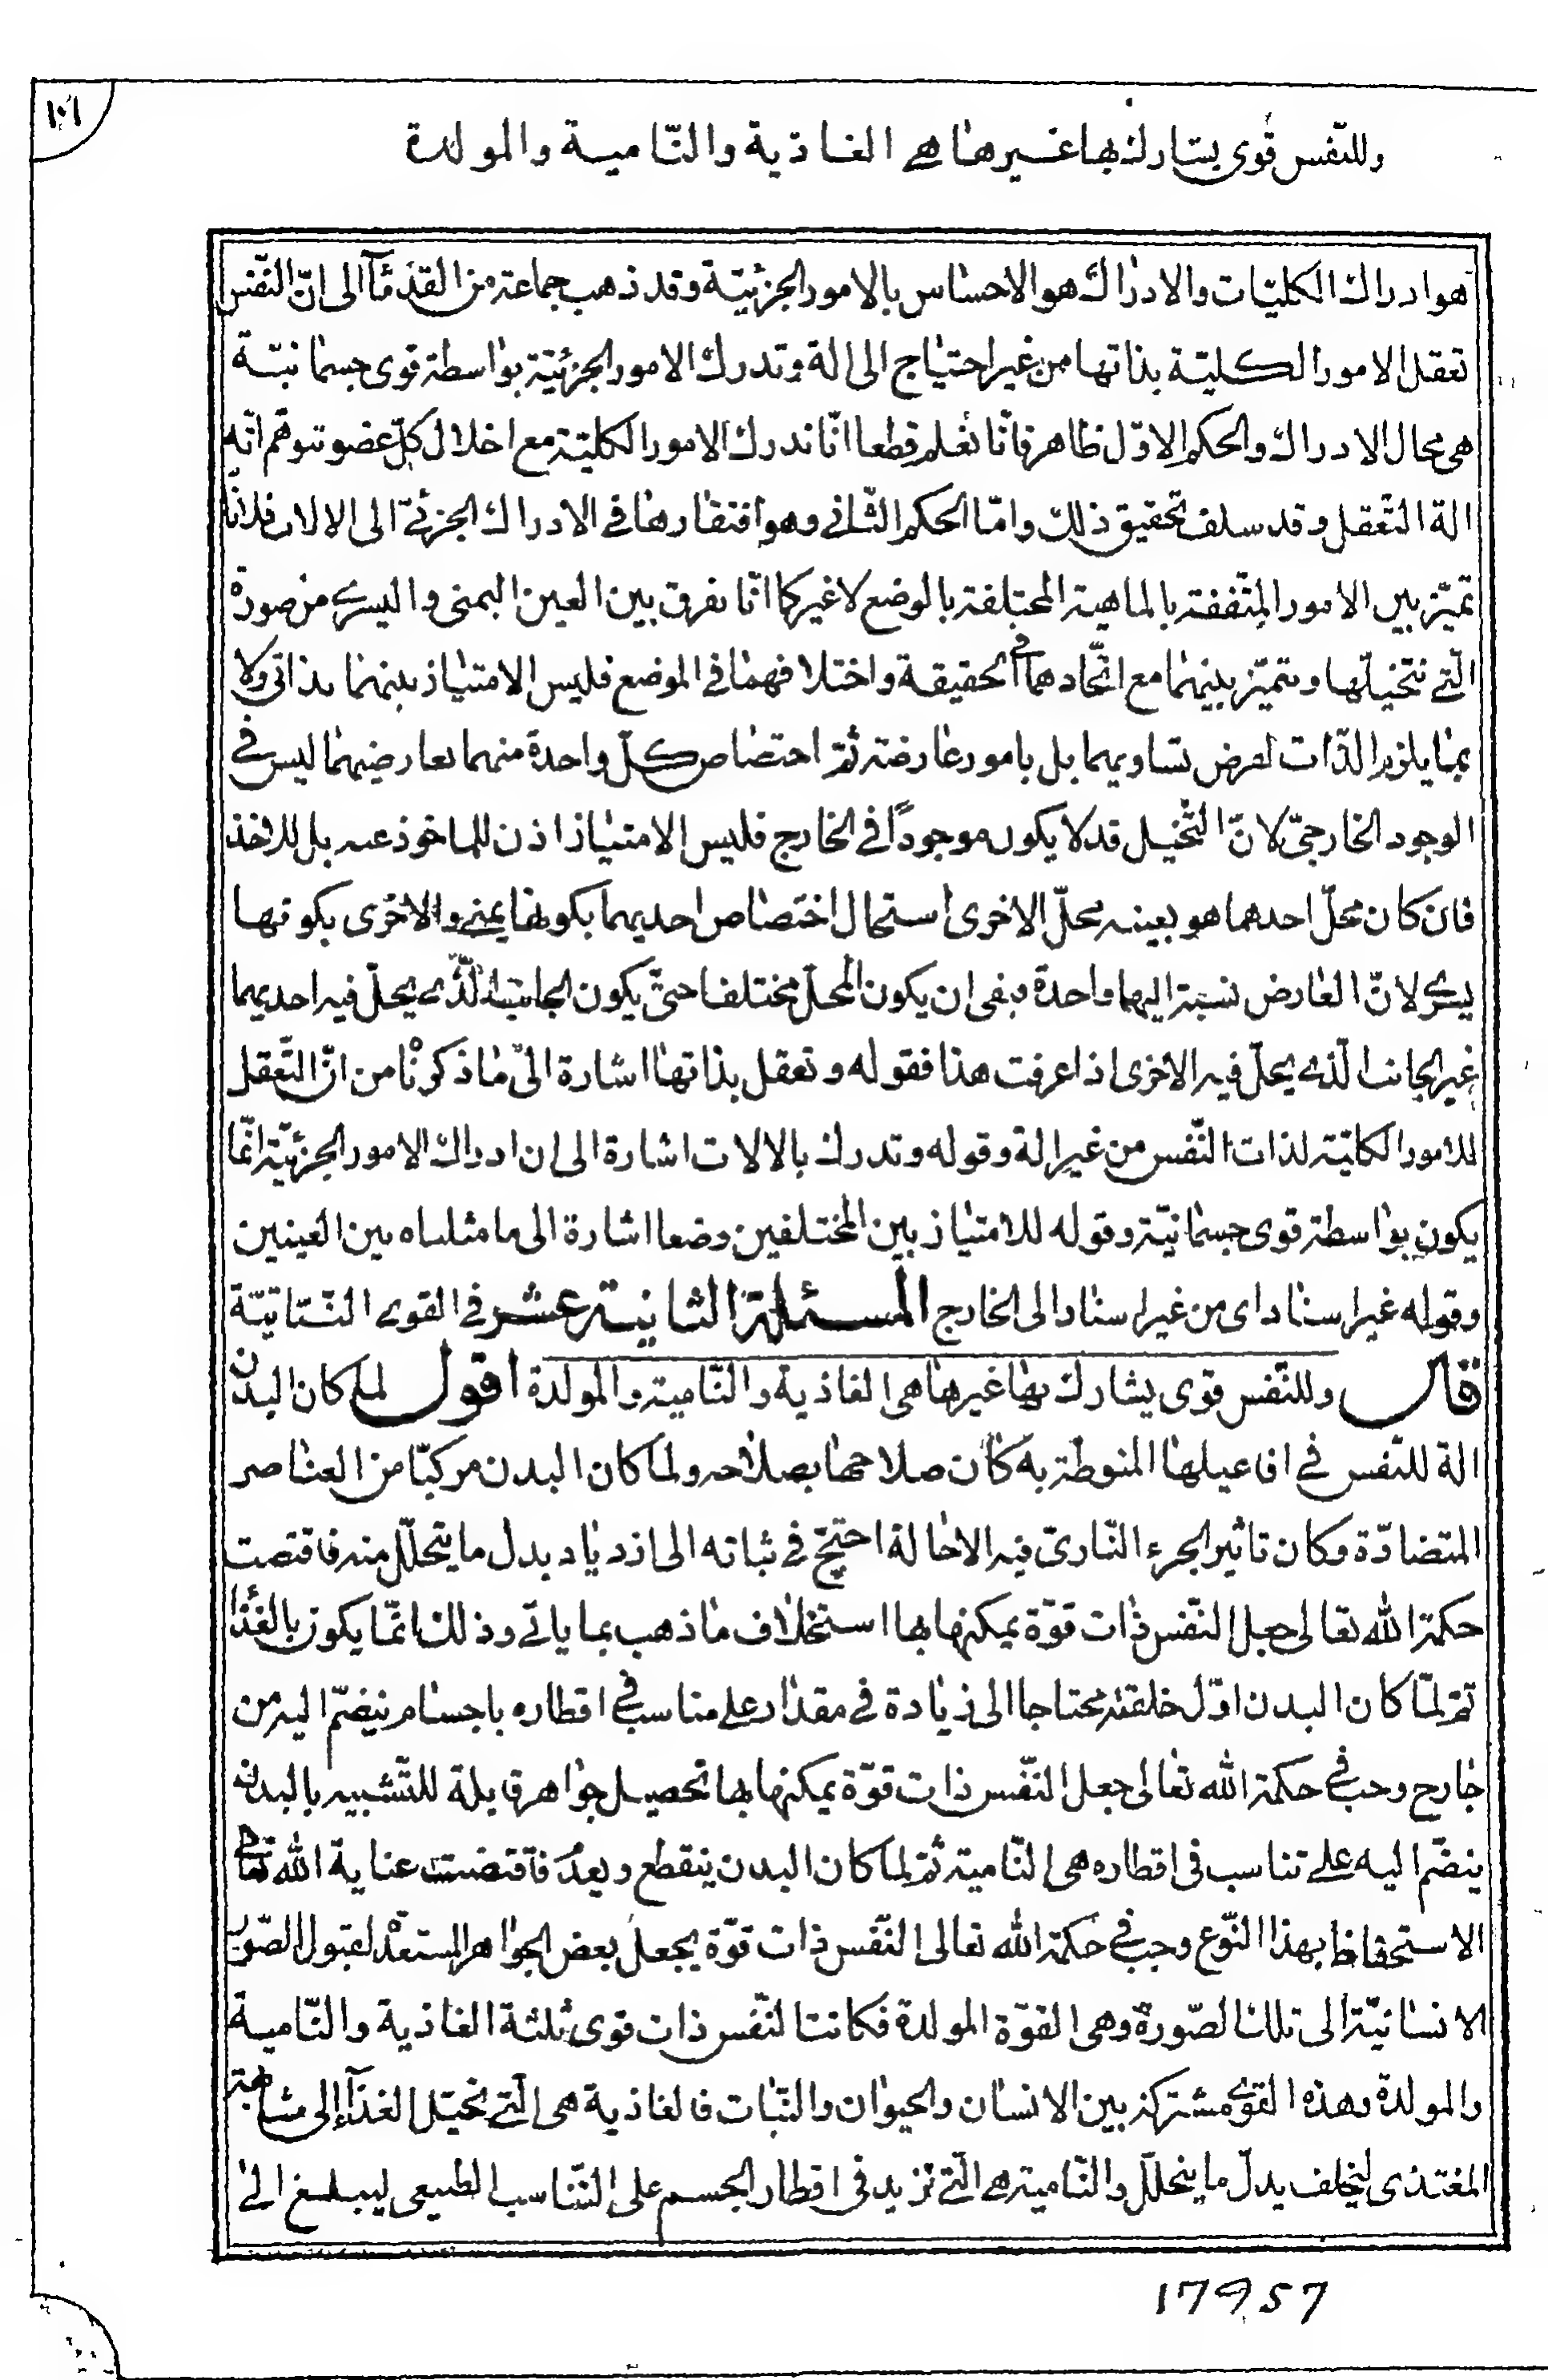 ١٠٦
وللنّفس قوى يشارك بها غيرها هي الغاذية والنّامية والمولدة
هو ادراك الكليّات والادراك هو الاحساس بالامور الجزئيّة وقد ذهب جماعة من القدمآء الى انّ النّفس
تعقل الامور الكليّة بذاتها من غير احتياج الى الة وتدرك الامور الجزئيّة بواسطة قوى جسمانيّة
هي محال الادراك والحكم الاوّل ظاهر فانّا نعلم قطعا انّا ندرك الامور الكليّة مع اختلال كلّ عضو تتوهّم انّه
الة التّعقل وقد سلف تحقيق ذلك وامّا الحكم الثّاني وهو افتقارها في الادراك الجزئيّ الى الالات فلانّا
تميّز بين الامور المتّفقة بالماهية المختلفة بالوضع لا غير كما انّا نفرق بين العين اليمنى واليسرى من صورة
الّتي نتخيلّها ونتميّز بينهما مع اتّحادهما في الحقيقة واختلافهما في الموضع فليس الامتياز بينهما بذاتي ولا
بما يلزم الذّات لفرض تساويهما بل بامور عارضة ثمّ اختصاص كلّ واحدة منهما بعارضيهما ليس في
الوجود الخارجيّ لانّ التّخيل قد لا يكون موجوداً في الخارج فليس الامتياز اذن للماخوذ عنه بل للاخذ
فان كان محلّ احدهما هو بعينه محلّ الاخرى استحال اختصاص احديهما بكونها يمنى والاخرى بكونها
يسرى لانّ العارض نسبة اليهما واحدة فبقي ان يكون المحلّ مختلفا حتّى يكون الجانب الّذي يحلّ فيه احديهما
غير الجانب الّذي يحلّ فيه الاخرى اذا عرفت هذا فقوله وتعقل بذاتها اشارة الى ما ذكرنا من انّ التّعقل
للامور الكليّة لذات النّفس من غير الة وقوله وتدرك بالالات اشارة الى ان ادراك الامور الجزئيّة انّما
يكون بواسطة قوى جسمانيّة وقوله للامتياز بين المختلفين وضعا اشارة الى ما مثلناه بين العينين
وقوله غير اسناد اى من غير اسناد الى الخارج المسئلة الثانية عشر في القوى النّباتيّة
قال وللنّفس قوى يشارك بها غيرها هي الغاذية والنّامية والمولدة اقول لما كان البدن
الة للنّفس في افاعيلها المنوطة به كان صلاحها بصلاحه ولما كان البدن مركبّا من العناصر
المتضادّة وكان تاثير الجزء النّاريّ فيه الاحالة احتيج في ثباته الى ازدياد بدل ما يتحلّل منه فاقتضت
حكمة الله تعالى جعل النّفس ذات قوّة يمكنها بها استخلاف ما ذهب بما ياتي وذلك انّما يكون بالغذاء
ثمّ لمّا كان البدن اوّل خلقته محتاجا الى زيادة في مقداره على مناسب في اقطاره باجسام ينضمّ اليه من
خارج وجب في حكمة الله تعالى جعل النّفس ذات قوّة يمكنها بها تحصيل جواهر قابلة للتّشبيه بالبدن
ينضّم اليه على تناسب في اقطاره هي النّامية ثمّ لما كان البدن ينقطع ويعدم فاقتضت عناية الله تعالى
الاستحفاظ بهذا النّوع وجب في حكمة الله تعالى النّفس ذات قوّة يجعل بعض الجواهر المستعدّة لقبول الصّور
الانسانيّة الى تلك الصّورة وهي القوّة المولدة فكانت النّفس ذات قوى ثلثة الغاذية والنّامية
والمولدة وهذه القوى مشتركة بين الانسان والحيوان والنّبات فالغاذية هي الّتي تحيل الغذآء إلى مشابهة
المغتذى ليخلف بدل ما يتحلّل والنّامية هي الّتي تزيد في اقطار الجسم على التّناسب الطبيعي ليبلغ الى
17957